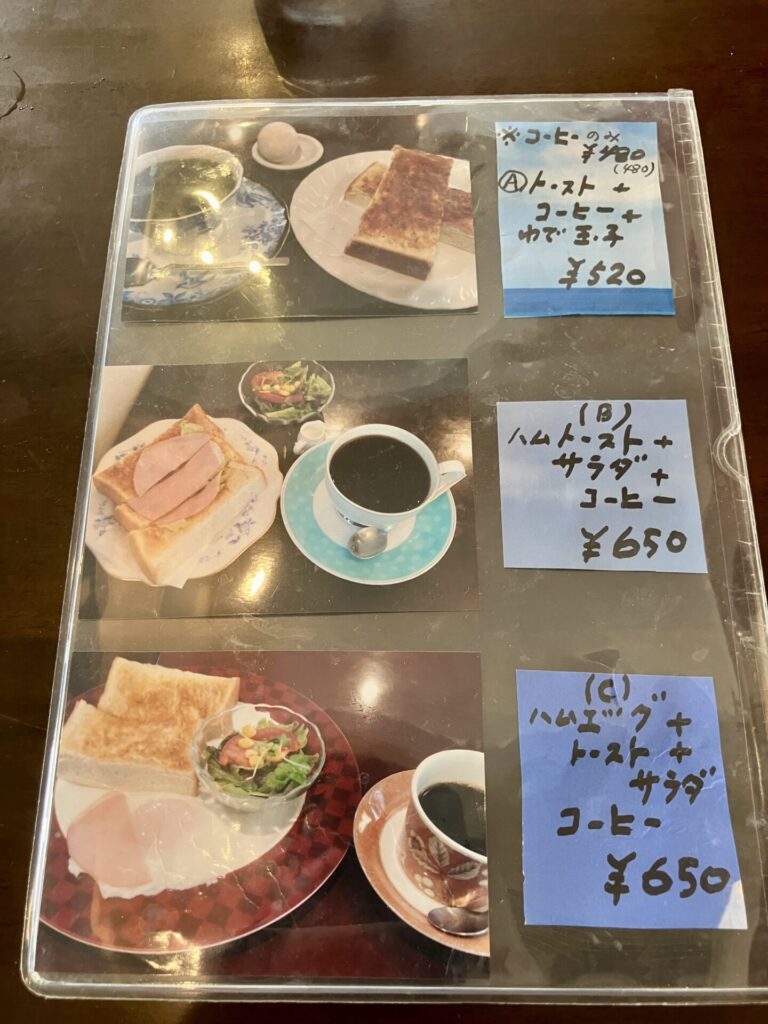 ※コーヒーのみ
¥480
(480)
Ⓐトースト +
コーヒー +
ゆで玉子
¥520
(B)
ハムトースト +
サラダ +
コーヒー
¥650
(C)
ハムエッグ +
トースト +
サラダ
コーヒー
¥650